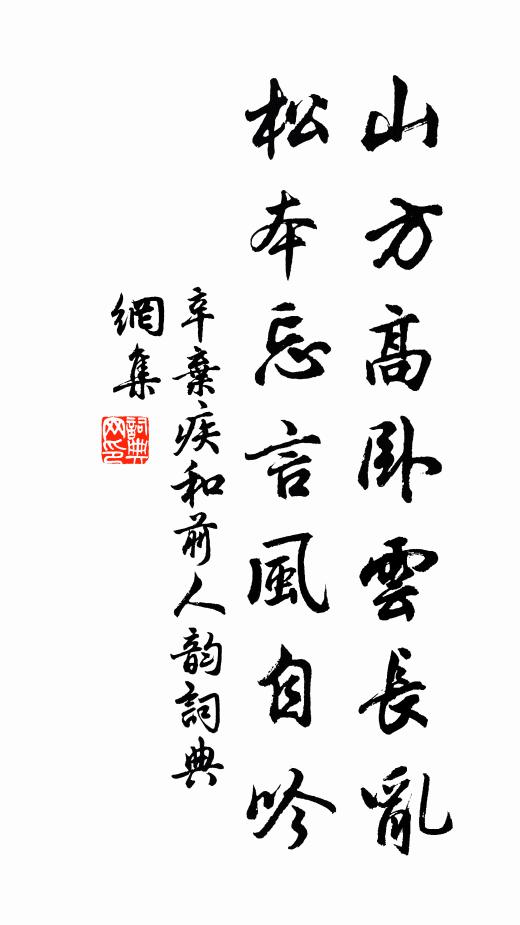 山方高卧雲長亂
松本忘言風自吟
辛棄疾和前人韵詞典
網集
詞典
网印